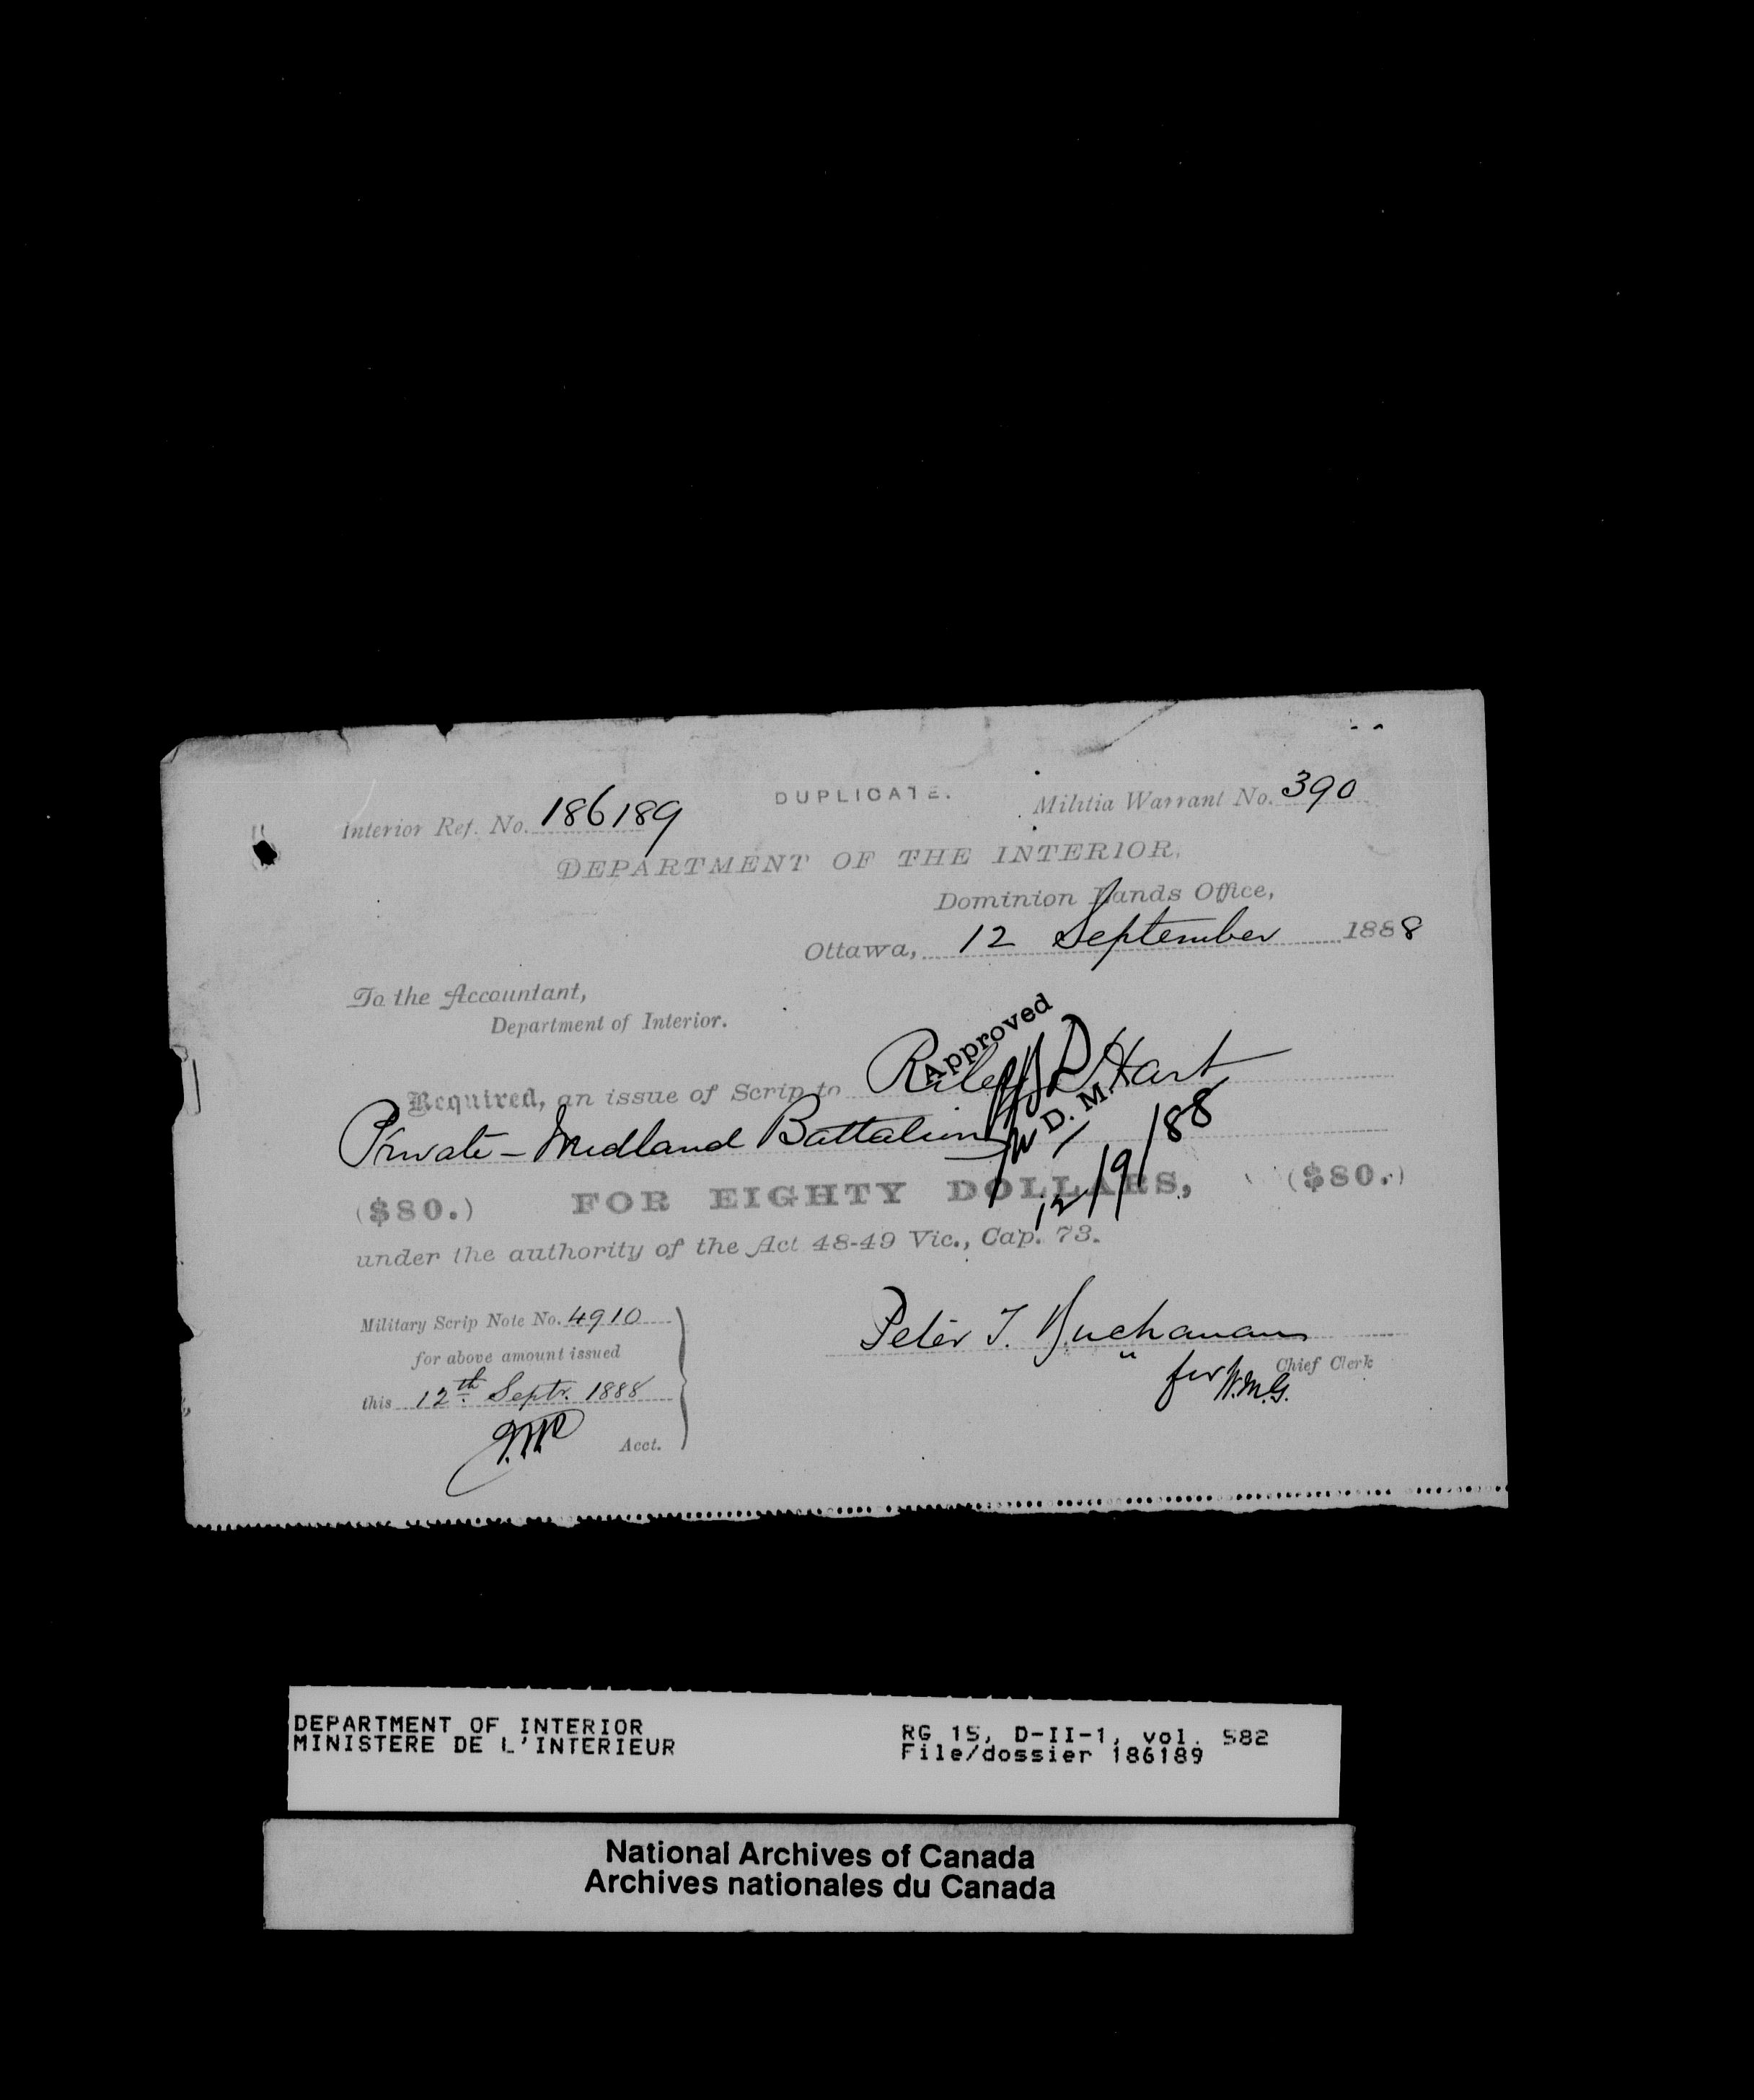 DUPLICATE.
Interior Ref. No. 186189
Militia Warrant No. 390
DEPARTMENT OF THE INTERIOR,
Dominion Lands Office,
Ottawa, 12 September 1888
To the Accountant,
Department of Interior.
Approved
Required, an issue of Scrip to Riley D Hart
D. M.
Private - Midland Battalion
12/9/88
($80.) FOR EIGHTY DOLLARS, ($80.)
under the authority of the Act 48-49 Vic., Cap. 73.
Military Scrip Note No. 4910
for above amount issued
this 12th Septr. 1888
Acct.
Peter T. Buchanan
for Chief Clerk
DEPARTMENT OF INTERIOR
MINISTERE DE L'INTERIEUR
RG 15, D-II-1, vol. 582
File/dossier 186189
National Archives of Canada
Archives nationales du Canada